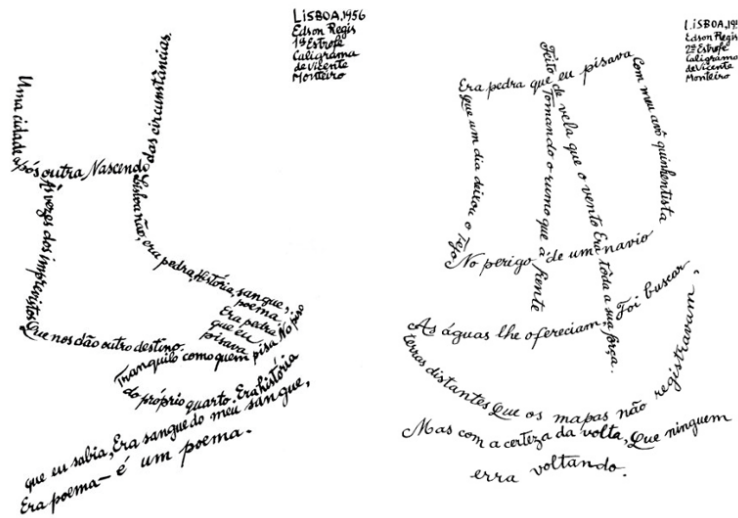 LISBOA, 1956
Edson Regis
1ª Estrofe
Caligrama
de Vicente
Monteiro
Uma cidade
após outra Nascendo
das circunstâncias.
Às vezes dos imprevistos
Que nos dão outro destino.
Lisboa não, era pedra, História, sangue,
poema.
Era pedra
que eu
pisava
Tranquilo como quem pisa No piso
do próprio quarto. Era história
que eu sabia, Era sangue do meu sangue,
Era poema — é um poema.
LISBOA, 19
Edson Regis
2ª Estrofe
Caligrama
de Vicente
Monteiro
Era pedra que eu pisava
Com meu avô quinhentista
Que um dia deixou o Tejo
No perigo de um navio
Feito de vela que o vento
Tomando o rumo que à frente
Era tôda a sua força.
As águas lhe ofereciam. Foi buscar
terras distantes Que os mapas não registravam,
Mas com a certeza da volta, Que ninguem
erra voltando.